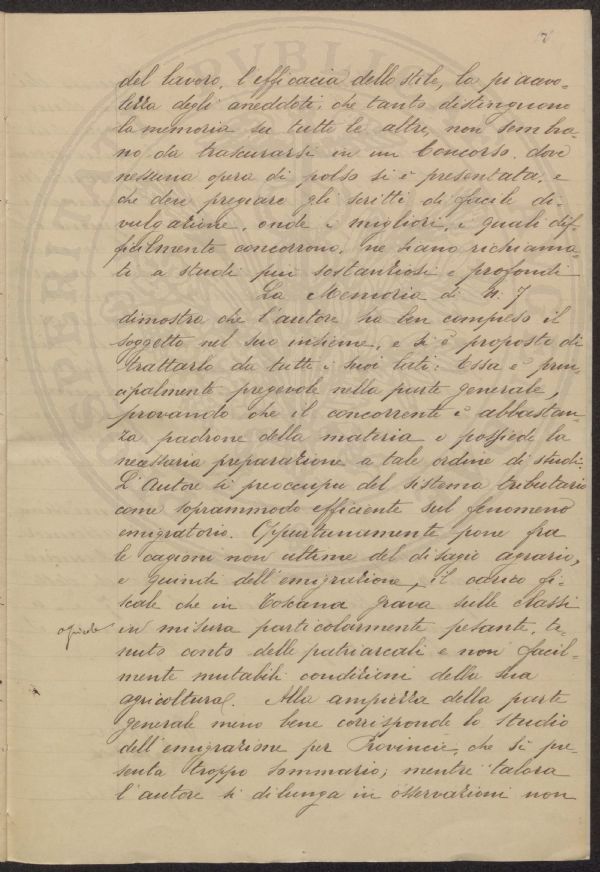 del lavoro, l'efficacia dello stile, la piacevo-
lezza degli aneddoti, che tanto distinguono
la memoria su tutte le altre, non sembra-
no da trascurarsi in un Concorso, dove
nessuna opera di polso si è presentata, e
che deve pregiare gli scritti di facile di-
vulgazione, onde i migliori, i quali dif-
ficilmente concorrono, ne siano richiama-
ti a studi più sostanziosi e profondi
La Memoria di N. 7
dimostra che l'autore ha ben compreso il
soggetto nel suo insieme, e si è proposto di
trattarlo da tutti i suoi lati: Essa è prin-
cipalmente pregevole nella parte generale,
provando che il concorrente è abbastan-
za padrone della materia e possiede la
necessaria preparazione a tale ordine di studi.
L'Autore si preoccupa del sistema tributario
come soprammodo efficiente sul fenomeno
emigratorio. Opportunamente pone fra
le cagioni non ultime del disagio agrario,
e quindi dell'emigrazione, il carico fi-
scale che in Toscana grava sulle classi
agricole
in misura particolarmente pesante, te-
nuto conto delle patriarcali e non facil-
mente mutabili condizioni della sua
agricoltura. Alla ampiezza della parte
generale meno bene corrisponde lo studio
dell'emigrazione per Provincie, che si pre-
senta troppo sommario; mentre talora
l'autore si dilunga in osservazioni non